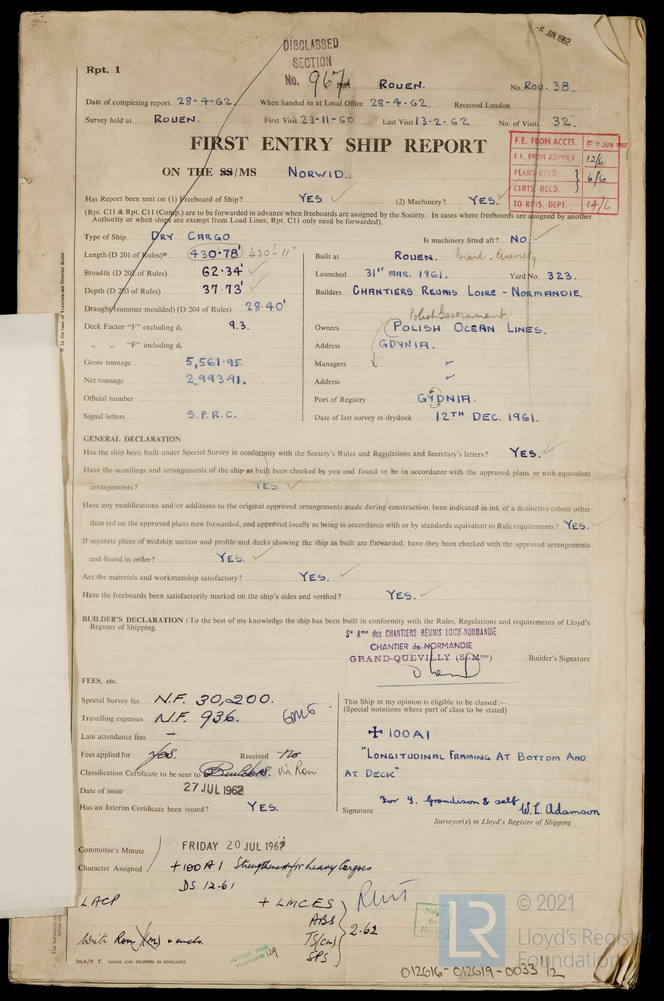 6 JUN 1962
DISCLASSED
SECTION
No. 967
Rpt. 1
Port ROUEN. No. ROU. 38.
Date of completing report 28-4-62. When handed in at Local Office 28-4-62. Received London
Survey held at ROUEN. First Visit 23-11-60 Last Visit 13-2-62 No. of Visits 32.
FIRST ENTRY SHIP REPORT
ON THE SS/MS NORWID.
F.E. FROM ACCTS. F 7 JUN 1962
F.E. FROM ADMIN/F 12/6
PLANS RECD. } 6/6
CERTS. RECD.
TO RPTS. DEPT. 14/6
Has Report been sent on (1) Freeboard of Ship? YES (2) Machinery? YES.
(Rpt. C11 & Rpt. C11 (Comp.) are to be forwarded in advance when freeboards are assigned by the Society. In cases where freeboards are assigned by another
Authority or when ships are exempt from Load Lines, Rpt. C11 only need be forwarded).
Type of Ship DRY CARGO Is machinery fitted aft? NO
Length (D 201 of Rules)* 430·78' 430'-11"
Breadth (D 202 of Rules) 62·34'
Depth (D 203 of Rules) 37·73'
Draught (summer moulded) (D 204 of Rules) 28·40'
Deck Factor "F" excluding d₁ 9.3.
„ „ "F" including d₁
Gross tonnage 5,561·95.
Net tonnage 2,993·91.
Official number
Signal letters S.P.R.C.
Built at ROUEN. Grand-Quevilly
Launched 31ST MAR. 1961. Yard No. 323.
Builders CHANTIERS REUNIS LOIRE-NORMANDIE.
Polish Government
Owners POLISH OCEAN LINES.
Address GDYNIA.
Managers "
Address "
Port of Registry GYDNIA.
Date of last survey in drydock 12TH DEC. 1961.
GENERAL DECLARATION
Has the ship been built under Special Survey in conformity with the Society's Rules and Regulations and Secretary's letters? YES.
Have the scantlings and arrangements of the ship as built been checked by you and found to be in accordance with the approved plans or with equivalent
arrangements? YES.
Have any modifications and/or additions to the original approved arrangements made during construction, been indicated in ink of a distinctive colour other
than red on the approved plans now forwarded, and approved locally as being in accordance with or by standards equivalent to Rule requirements? YES.
If separate plans of midship section and profile and decks showing the ship as built are forwarded, have they been checked with the approved arrangements
and found in order? YES.
Are the materials and workmanship satisfactory? YES.
Have the freeboards been satisfactorily marked on the ship's sides and verified? YES.
BUILDER'S DECLARATION: To the best of my knowledge the ship has been built in conformity with the Rules, Regulations and requirements of Lloyd's
Register of Shipping.
Sté Ame des CHANTIERS RÉUNIS LOIRE-NORMANDIE
CHANTIER de NORMANDIE
GRAND-QUEVILLY (S-Mme)
Builder's Signature
FEES, etc.
Special Survey fee N.F. 30,200.
Travelling expenses N.F. 936.
Late attendance fees –
Fees applied for Yes. Received No
Classification Certificate to be sent to Builders. via Rou
Date of issue 27 JUL 1962
Has an Interim Certificate been issued? YES.
This Ship in my opinion is eligible to be classed:—
(Special notations where part of class to be stated)
✠ 100A1
"LONGITUDINAL FRAMING AT BOTTOM AND
AT DECK"
Signature For G. Grandison & self W.L. Adamson
Surveyor(s) to Lloyd's Register of Shipping
Committee's Minute FRIDAY 20 JUL 1962
Character Assigned +100A1 Strengthened for heavy Cargoes
DS 12-61
LACP + LMCES
ABS
TS(CN) } 2.62
SPS
Write Rou
5m,6,54 T. (MADE AND PRINTED IN ENGLAND)
LR
© 2021
Lloyd's Register
Foundation
012616-012619-0033 1/2